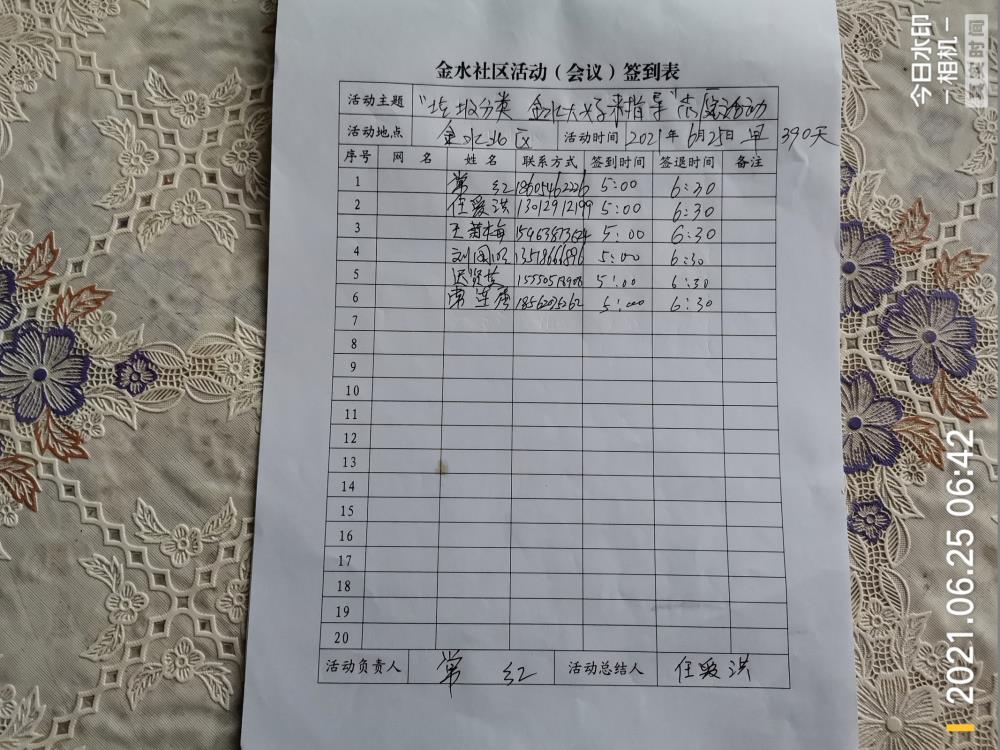 金水社区活动（会议）签到表
活动主题 "垃圾分类 金水大嫂来指导"志愿活动
活动地点 金水北区 活动时间 2021年6月25日 早 390天
序号 网 名 姓 名 联系方式 签到时间 签退时间 备注
1 常 红 18605462226 5:00 6:30
2 任爱洪 13012912199 5:00 6:30
3 5:00 6:30
4 5:00 6:30
5 5:00 6:30
6 5:00 6:30
7
8
9
10
11
12
13
14
15
16
17
18
19
20
活动负责人 常 红 活动总结人 任爱洪
今日水印
-相机-
真实时间
2021.06.25 06:42